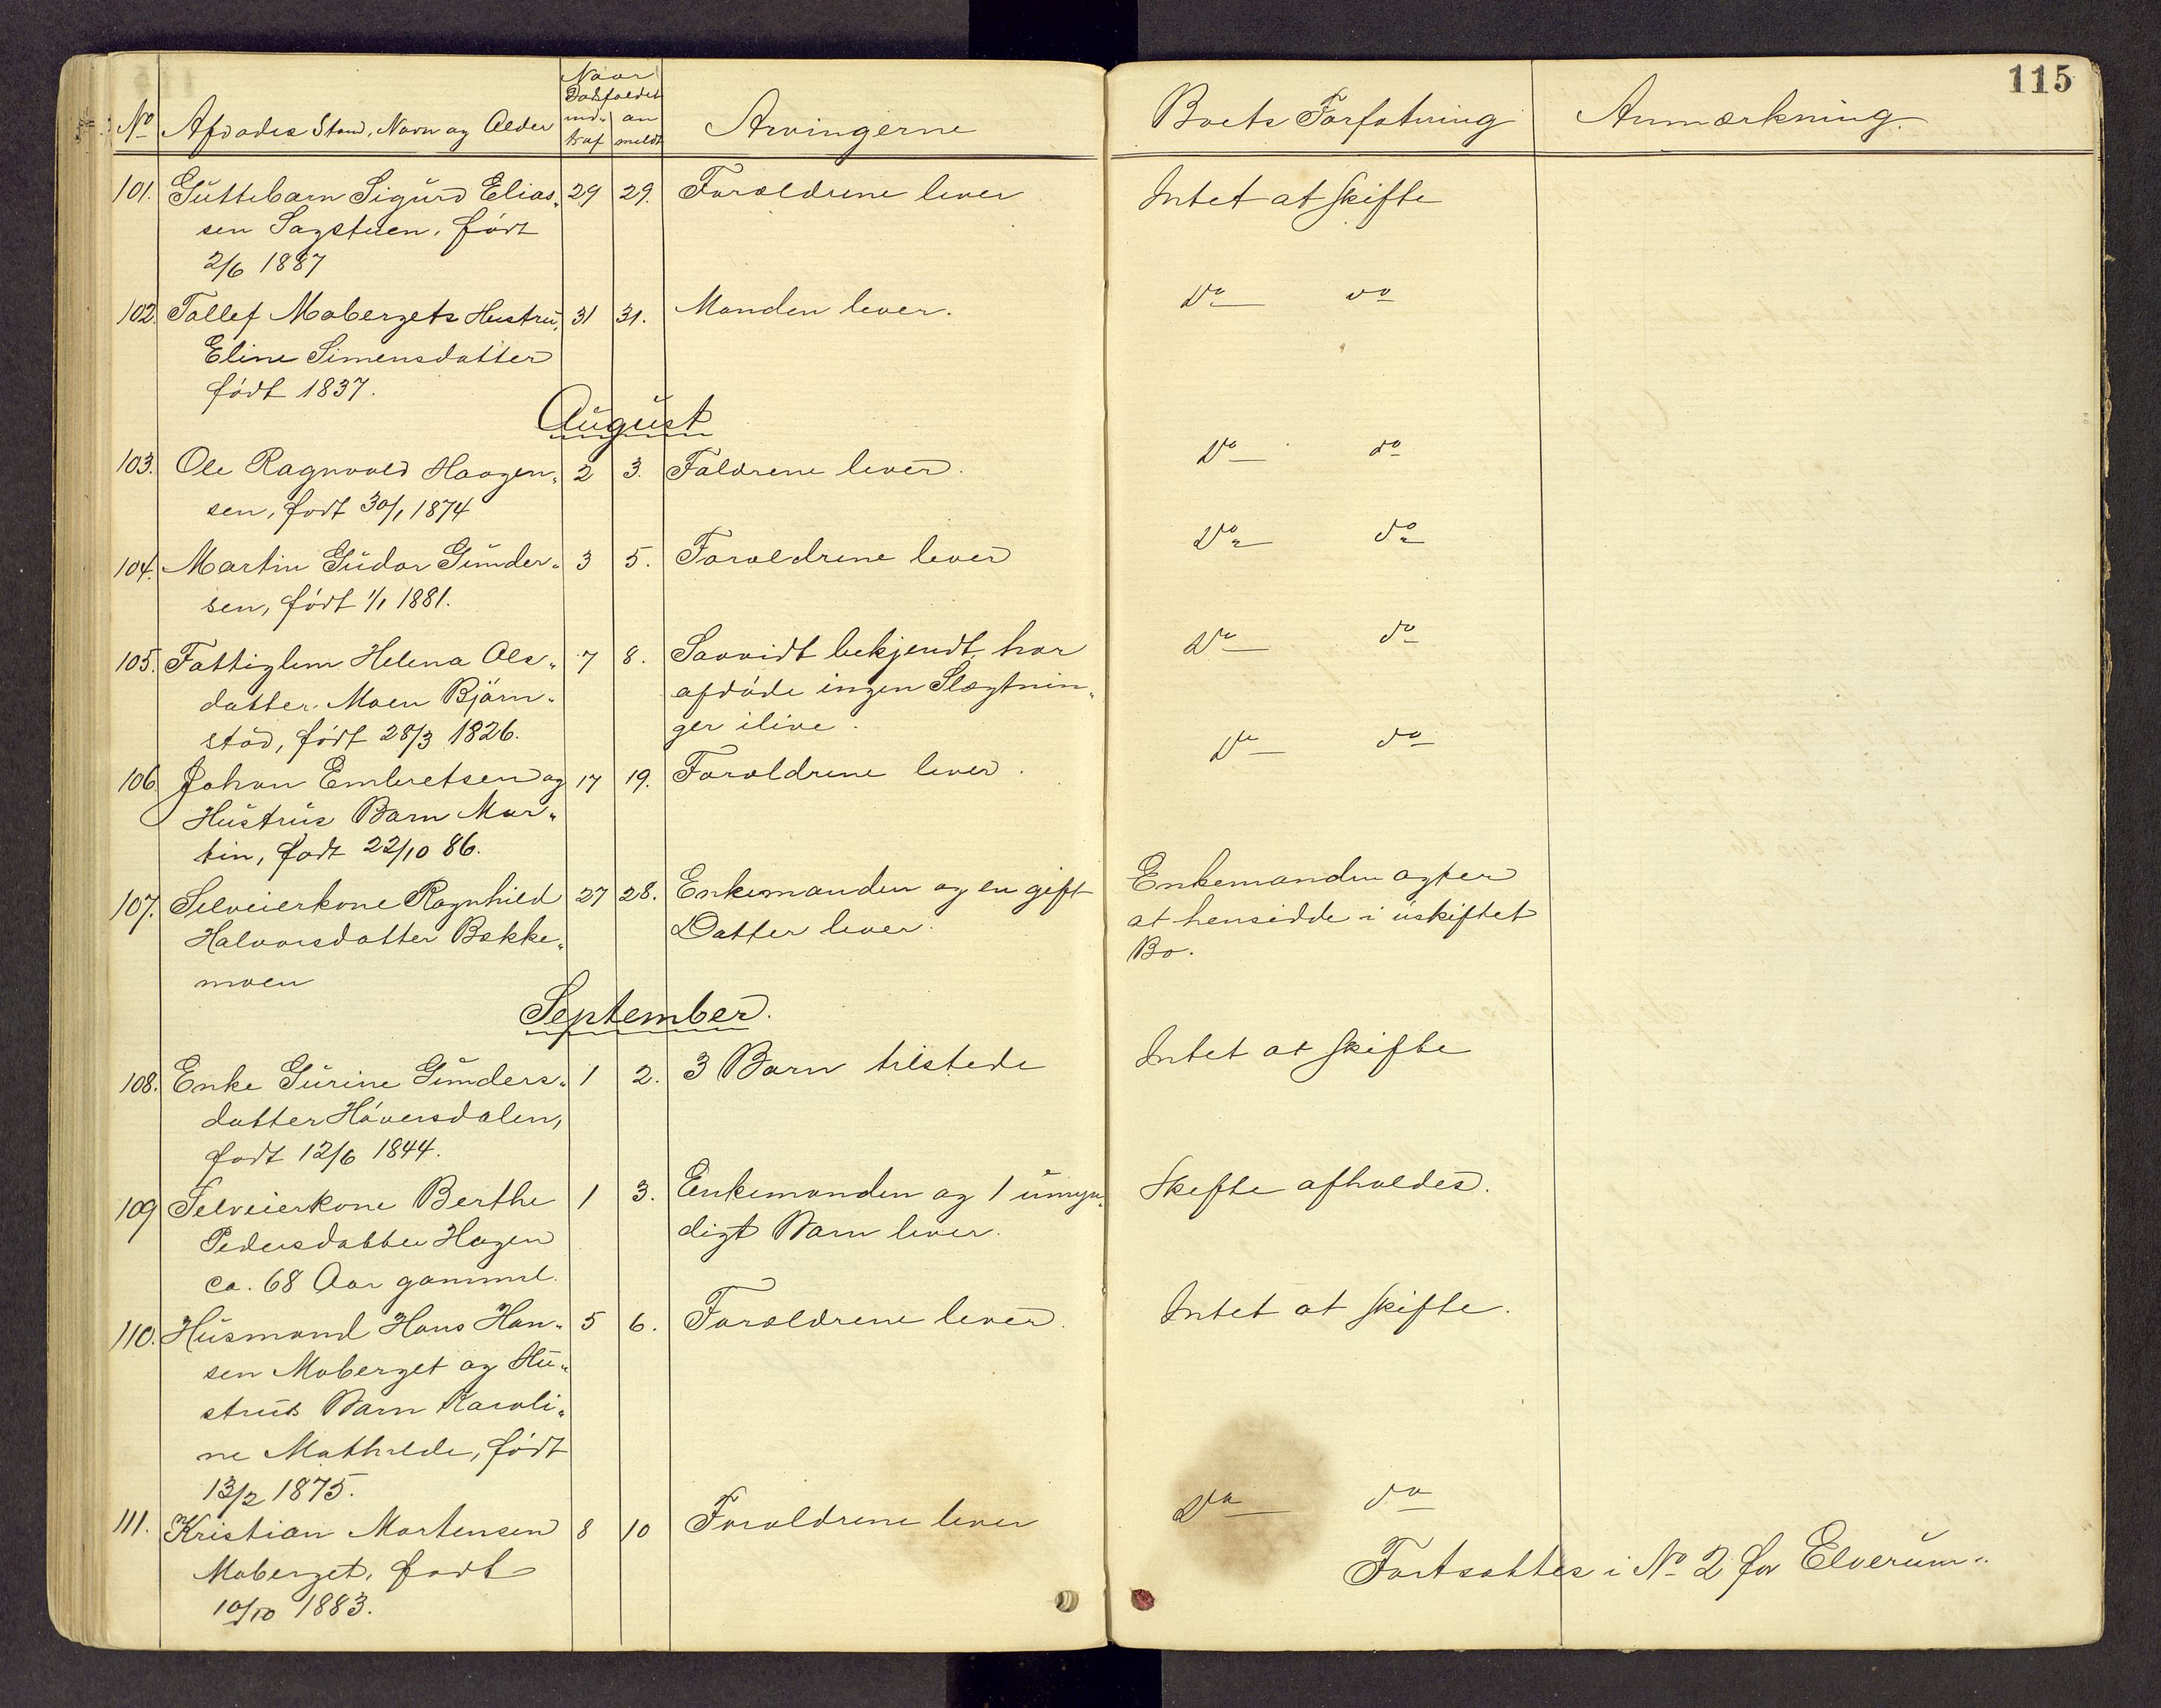 115
No Afdødes Stand, Navn og Alder
Naar
Dødsfaldet
ind- an
traf meldt
Arvingerne
Boets Forfatning
Anmærkning.
101. Guttebarn Sigurd Elias- 29 29. Forældrene lever Intet at skifte
sen Sagstuen, født
2/6 1887
102. Tollef Mobergets Hustru, 31 31. Manden lever. Do do
Eline Simensdatter
født 1837.
August
103. Ole Ragnvald Haagen- 2 3. Faldrene lever. Do do
sen, født 30/1 1874
104. Martin Gudar Gunder- 3 5. Forældrene lever Do do
sen, født 1/1 1881.
105. Fattiglem Helena Ols- 7 8. Saavidt bekjendt, har Do do
datter Moen Bjørn- afdøde ingen Slægtnin-
stad, født 28/3 1826. ger ilive.
106. Johan Embretsen og 17 19. Forældrene lever. Do do
Hustrus Barn Mar-
tin, født 22/10 86.
107. Selveierkone Ragnhild 27 28. Enkemanden og en gift Enkemanden agter
Halvorsdatter Bække- Datter lever. at hensidde i uskiftet
moen Bo.
September.
108. Enke Gurine Gunders- 1 2. 3 Børn tilstede Intet at skifte
datter Høversdalen,
født 12/6 1844.
109 Selveierkone Berthe 1 3. Enkemanden og 1 umyn- Skifte afholdes.
Pedersdatter Hagen digt Barn lever.
ca. 68 Aar gammel.
110. Husmand Hans Han- 5 6. Forældrene lever. Intet at skifte.
sen Moberget og Hu-
strus Barn Karoli-
ne Mathilde, født
13/2 1875.
111. Kristian Mortensen 8 10 Forældrene lever Do do
Moberget, født
10/10 1883.
Fortsættes i No 2 for Elverum.